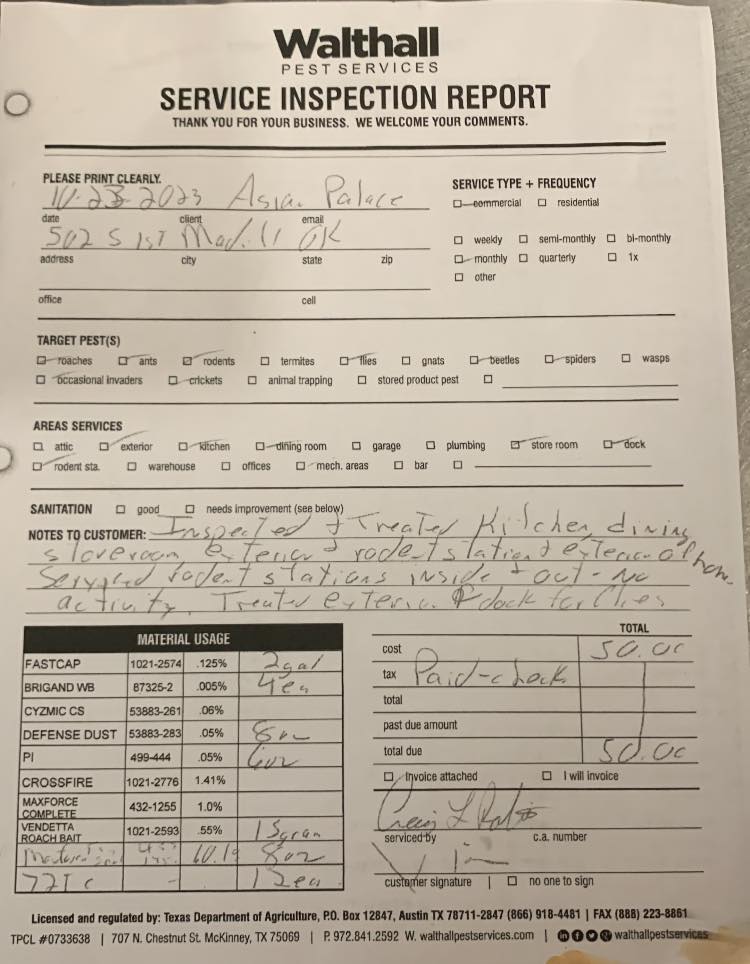 Walthall
PEST SERVICES
SERVICE INSPECTION REPORT
THANK YOU FOR YOUR BUSINESS. WE WELCOME YOUR COMMENTS.
PLEASE PRINT CLEARLY.
10-23-2023 Asian Palace
date client email
502 S 1ST Madill OK
address city state zip
office cell
SERVICE TYPE + FREQUENCY
commercial residential
weekly semi-monthly bi-monthly
monthly quarterly 1x
other
TARGET PEST(S)
roaches ants rodents termites flies gnats beetles spiders wasps
occasional invaders crickets animal trapping stored product pest
AREAS SERVICES
attic exterior kitchen dining room garage plumbing store room dock
rodent sta. warehouse offices mech. areas bar
SANITATION good needs improvement (see below)
NOTES TO CUSTOMER: Inspected + Treated Kitchen, dining
storeroom exterior + rodent station + exterior of
Serviced rodent stations inside + out - no
activity. Treated exterior & dock for flies
MATERIAL USAGE
FASTCAP 1021-2574 .125% 2gal
BRIGAND WB 87325-2 .005% 4ea
CYZMIC CS 53883-261 .06%
DEFENSE DUST 53883-283 .05% 8oz
PI 499-444 .05% 6oz
CROSSFIRE 1021-2776 1.41%
MAXFORCE COMPLETE 432-1255 1.0%
VENDETTA ROACH BAIT 1021-2593 .55% 15gram
8oz
12ea
TOTAL
cost 50.00
tax Paid-check
total
past due amount
total due 50.00
Invoice attached I will invoice
Craig L
serviced by c.a. number
customer signature | no one to sign
Licensed and regulated by: Texas Department of Agriculture, P.O. Box 12847, Austin TX 78711-2847 (866) 918-4481 | FAX (888) 223-8861
TPCL #0733638 | 707 N. Chestnut St. McKinney, TX 75069 | P. 972.841.2592 W. walthallpestservices.com | walthallpestservices